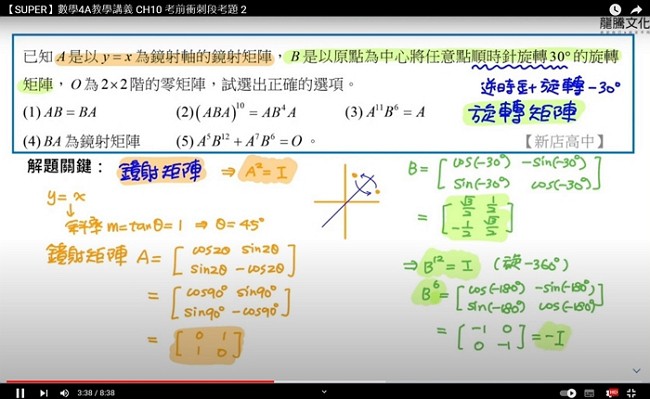 【SUPER】數學4A教學講義 CH10 考前衝刺段考題 2
龍騰文化
已知A是以y = x為鏡射軸的鏡射矩陣,B是以原點為中心將任意點順時針旋轉30°的旋轉
矩陣,O為2×2階的零矩陣,試選出正確的選項。
逆時針旋轉-30°
(1) AB = BA (2) (ABA)^10 = AB^4A (3) A^11B^6 = A
旋轉矩陣
(4) BA為鏡射矩陣 (5) A^5B^12 + A^7B^6 = O。
【新店高中】
解題關鍵:鏡射矩陣 ⇒ A^2 = I
y = x
↓
斜率 m = tanθ = 1 ⇒ θ = 45°
鏡射矩陣 A = [cos2θ sin2θ
sin2θ -cos2θ]
= [cos90° sin90°
sin90° -cos90°]
= [0 1
1 0]
B = [cos(-30°) -sin(-30°)
sin(-30°) cos(-30°)]
= [√3/2 1/2
-1/2 √3/2]
⇒ B^12 = I (旋-360°)
B^6 = [cos(-180°) -sin(-180°)
sin(-180°) cos(-180°)]
= [-1 0
0 -1] = -I
3:38 / 8:38